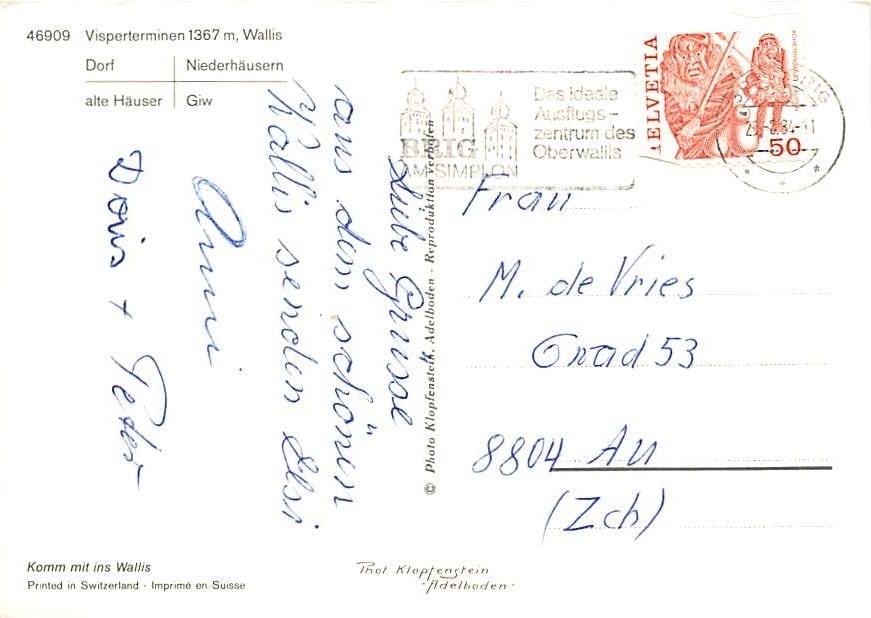 46909 Visperterminen 1367 m, Wallis
Dorf
Niederhäusern
alte Häuser
Giw
Liebe Grüsse
aus dem schönen
Wallis senden Elsi
Anni
Doris + Peter
© Photo Klopfenstein, Adelboden - Reproduktion verboten
BRIG
AM SIMPLON
Das ideale
Ausflugs-
zentrum des
Oberwallis
HELVETIA
50
Frau
M. de Vries
8804 Au
(Zch)
Komm mit ins Wallis
Printed in Switzerland · Imprimé en Suisse
Phot. Klopfenstein
Adelboden